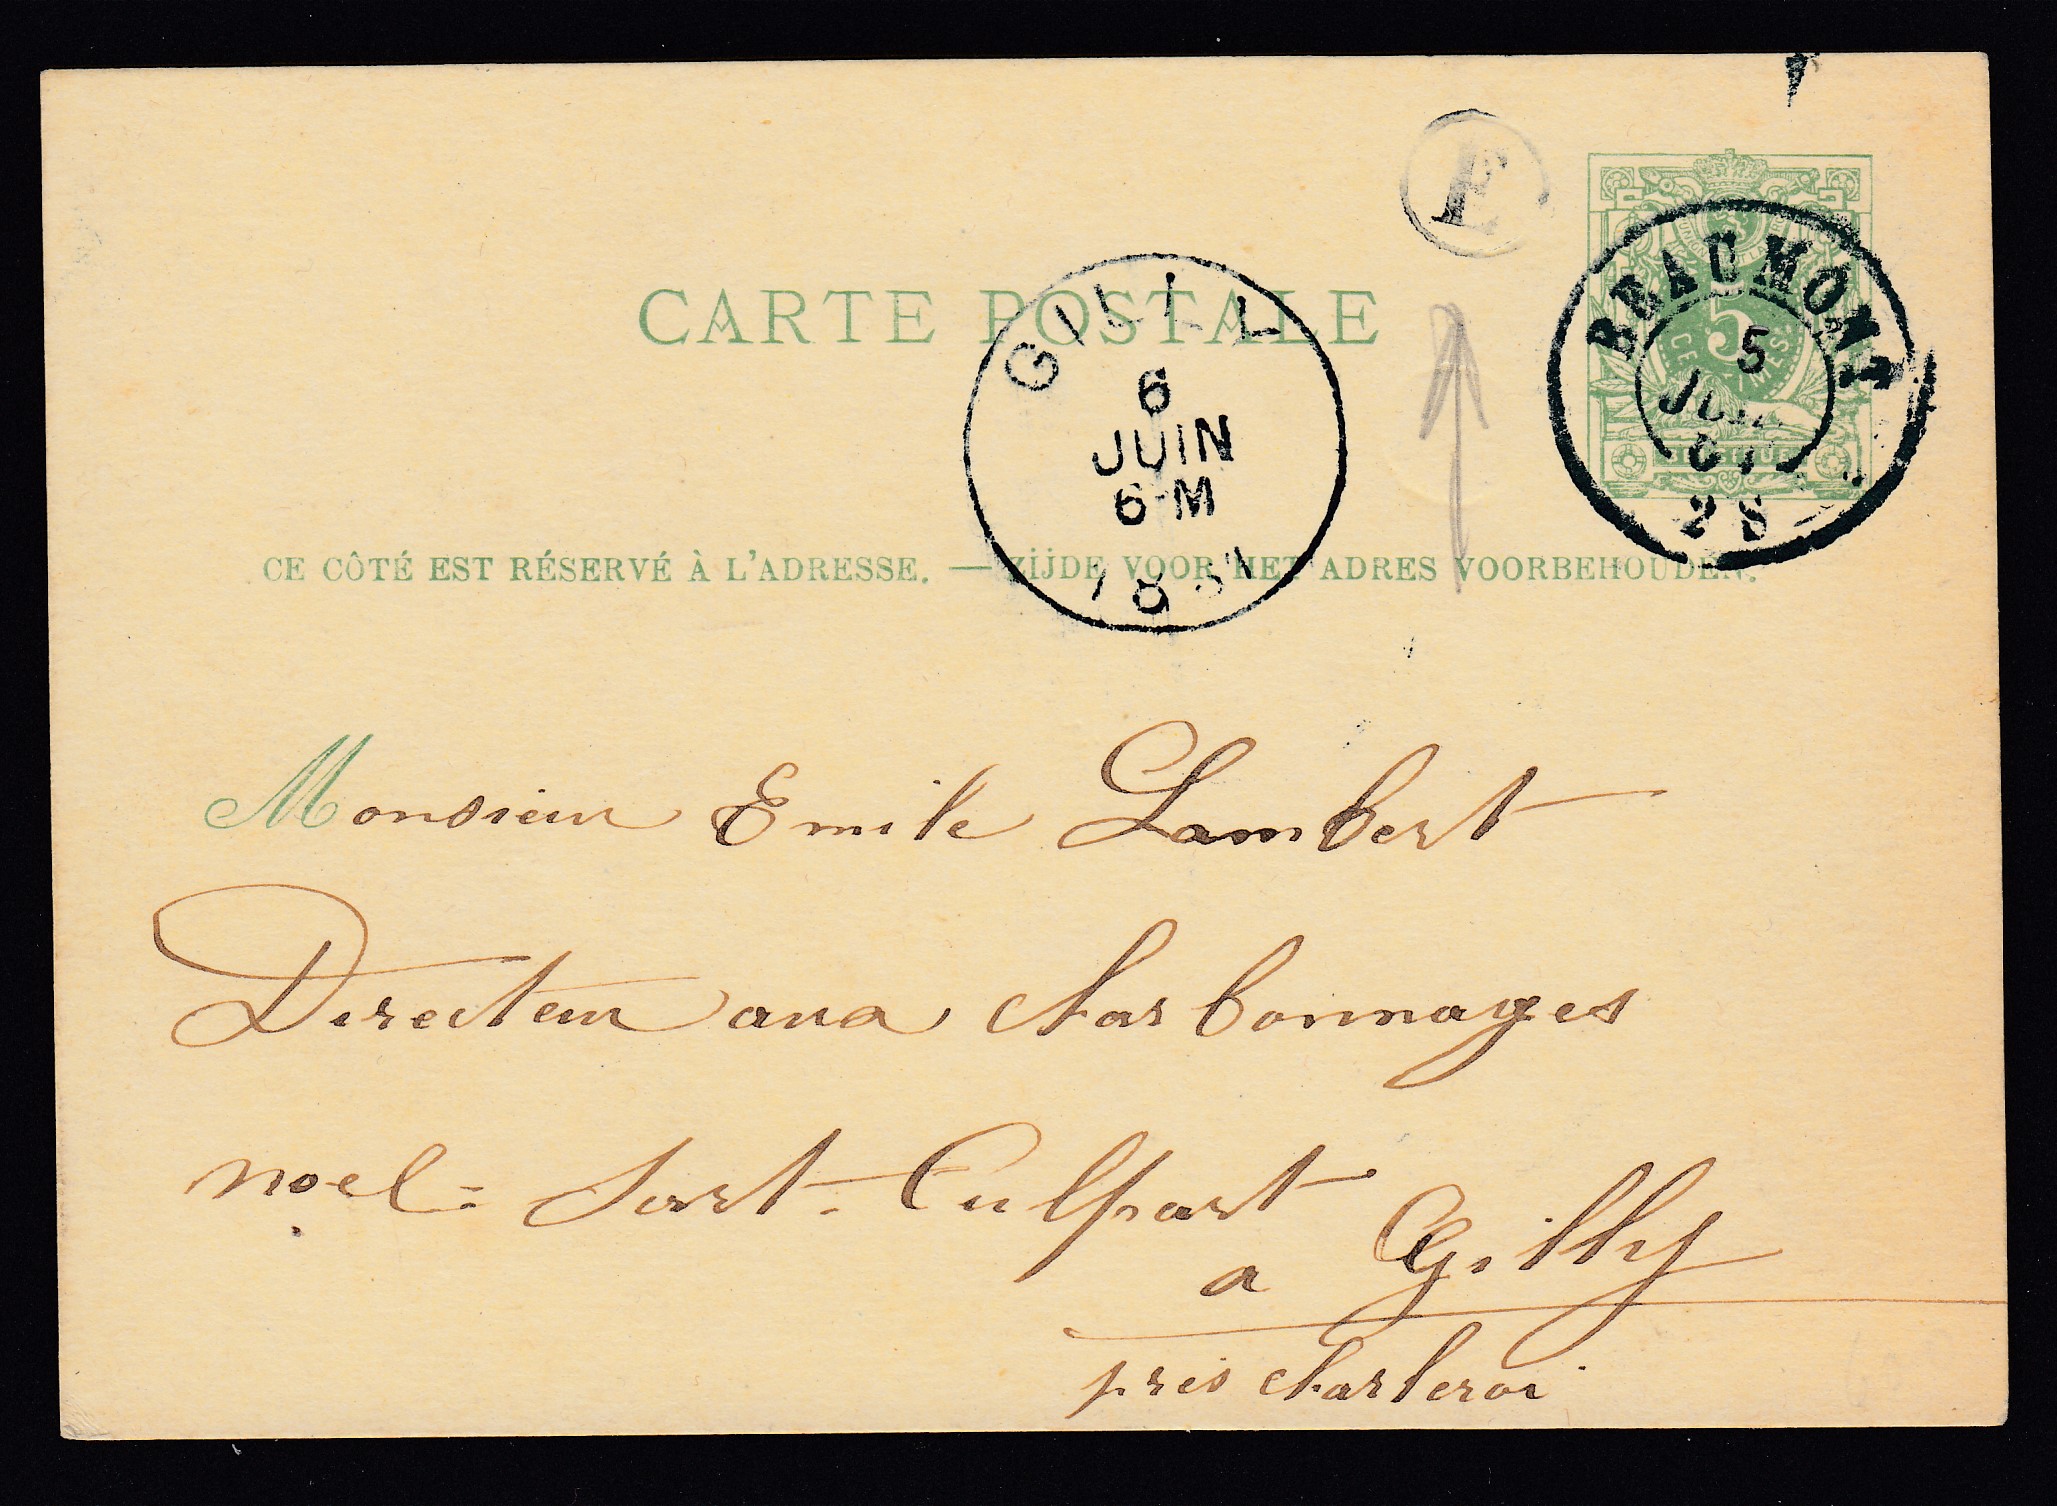 E
UNION
5
CENTIMES
BELGIQUE
BEAUMONT
5
JUIN
CARTE POSTALE
GILLY
6
JUIN
6-M
1881
CE CÔTÉ EST RÉSERVÉ À L'ADRESSE. — ZIJDE VOOR HET ADRES VOORBEHOUDEN.
Monsieur Emile Lambert
Directeur aux charbonnages
noel - Sart - Culpart
a Gilly
près charleroi